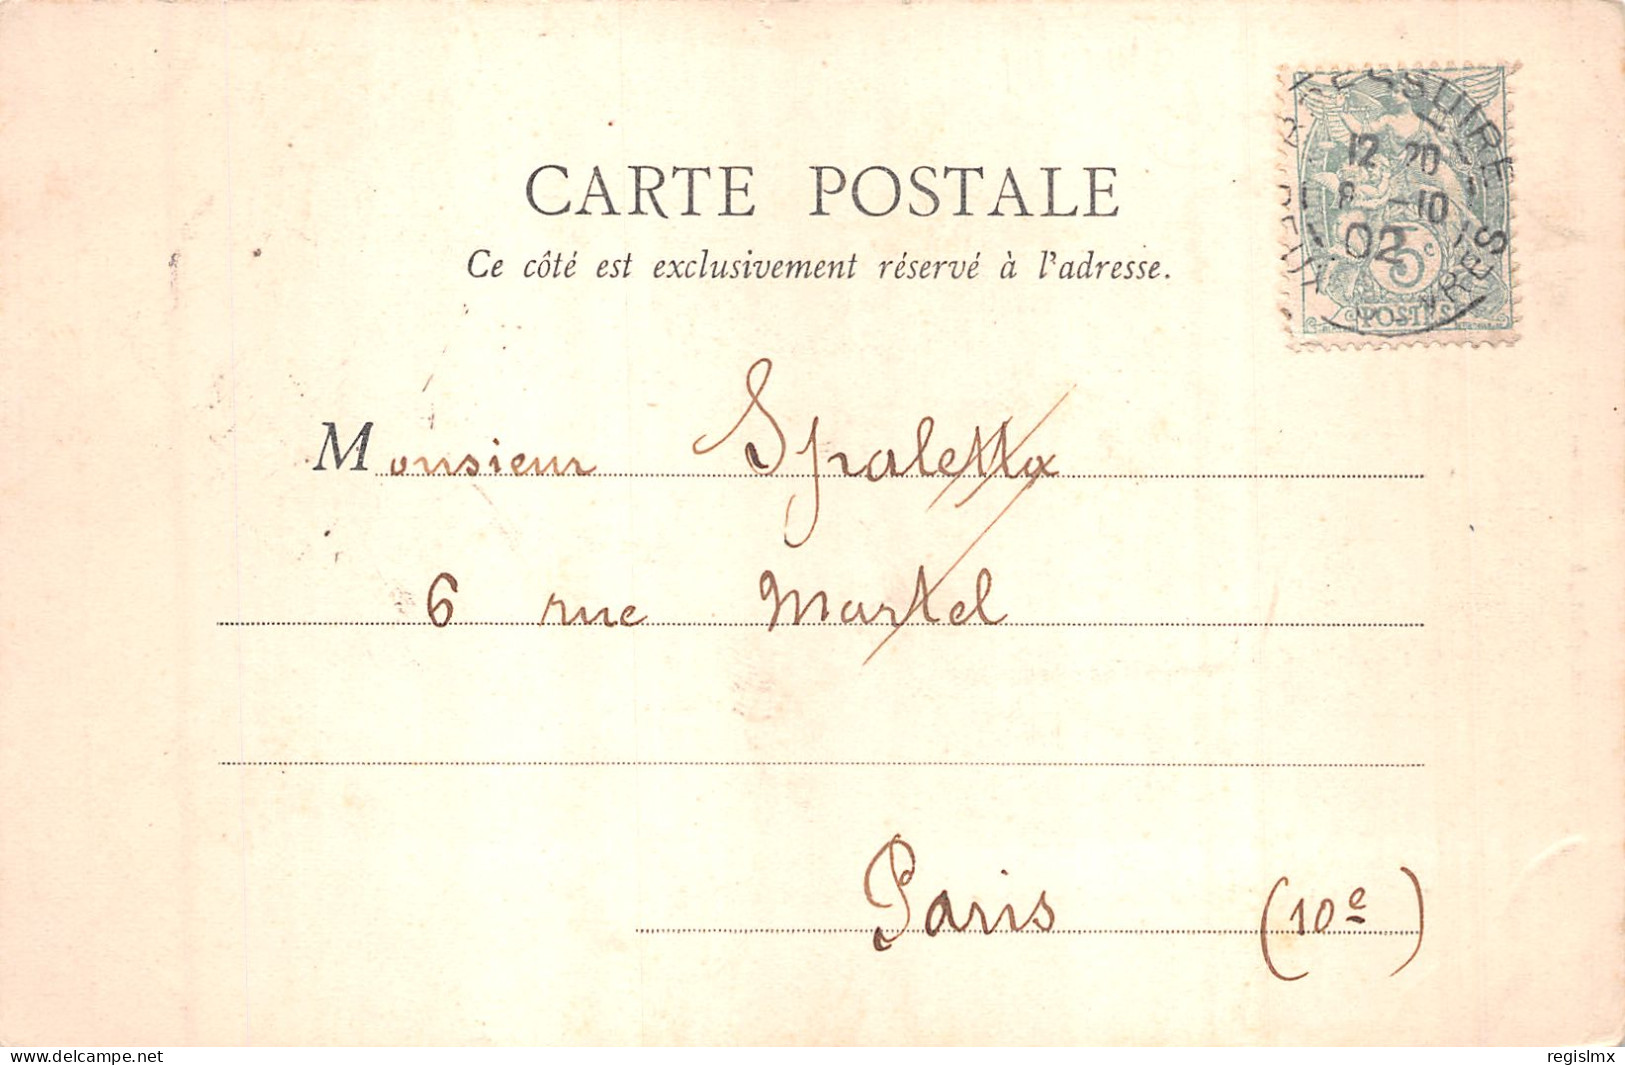 CARTE POSTALE
Ce côté est exclusivement réservé à l'adresse.
BRESSUIRE
12 20
8 -10
02
5c
POSTES
Monsieur Spaletta
6 rue Martel
Paris (10e)
Website : www.delcampe.net
regislmx